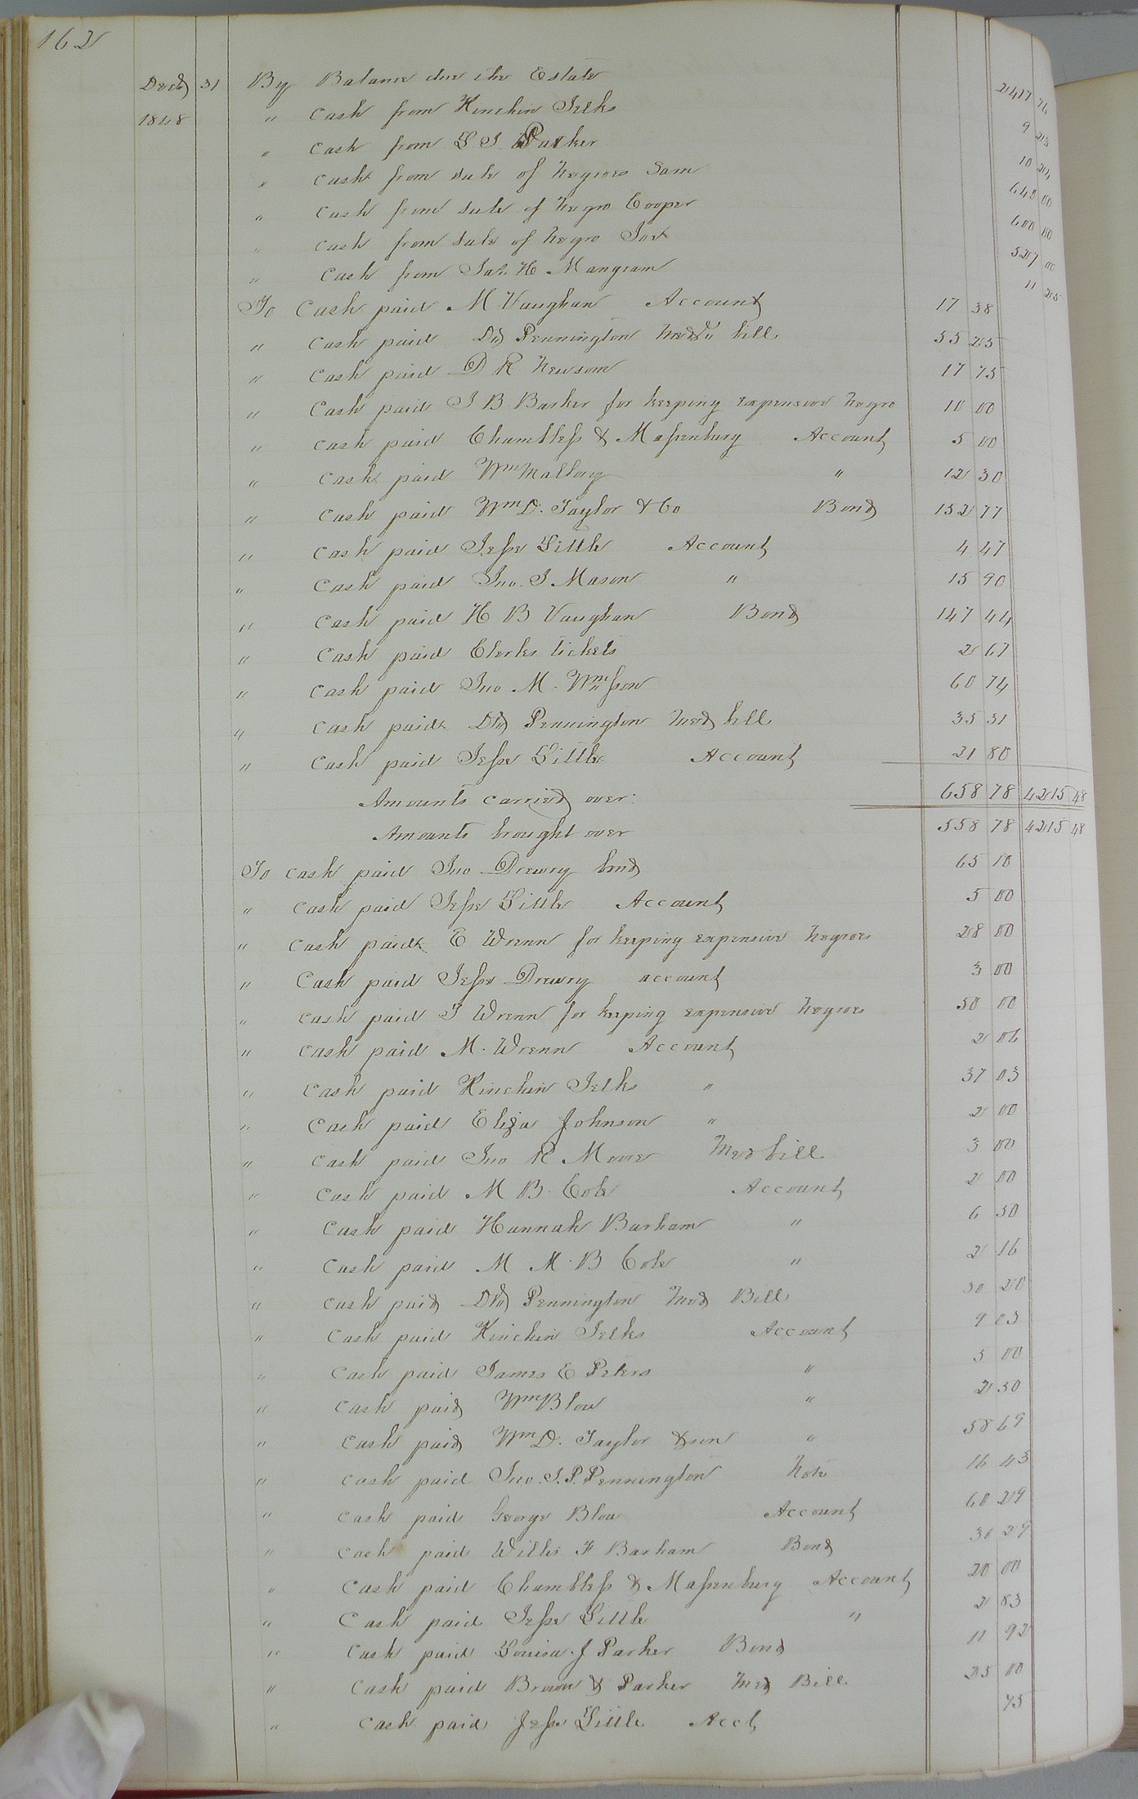 162
Decd 31 By Balance due the Estate 2417 74
1848 " Cash from Hinchin Jelks 9 25
" Cash from L J Parker 10 24
" Cash from sale of negroes Sam 640 00
" Cash from sale of negro Cooper 600 00
" Cash from sale of negro 527 00
" Cash from Jas. H Mangram 11 25
To Cash paid M Vaughan Account 17 38
" Cash paid Dr Pennington bill 55 25
" Cash paid D R Newsom 17 75
" Cash paid J B Barker for keeping expensive negro 10 00
" Cash paid Chambless & Massenburg Account 5 00
" Cash paid Wm Mallory " 12 30
" Cash paid Wm D. Taylor & Co Bond 152 77
" Cash paid Jesse Little Account 4 47
" Cash paid Jno. J Mason " 15 90
" Cash paid H B Vaughan Bond 147 44
" Cash paid Clerks tickets 2 67
" Cash paid Jno M. Wmsson 60 74
" Cash paid Dr Pennington Med bill 35 31
" Cash paid Jesse Little Account 21 80
Amounts carried over 658 78 4215 48
Amounts brought over 558 78 4215 48
To cash paid Jno Drewry bond 65 10
" Cash paid Jesse Little Account 5 00
" Cash paid E Wrenn for keeping expensive negroes 28 00
" Cash paid Jesse Drewry account 3 00
" Cash paid J Wrenn for keeping expensive negroes 50 00
" Cash paid M. Wrenn Account 2 06
" Cash paid Hinchin Jelks " 37 03
" Cash paid Eliza Johnson " 2 00
" Cash paid Jno R Moore Med bill 3 00
" Cash paid M B. Cole Account 2 00
" Cash paid Hannah Barham " 6 50
" Cash paid M M. B Cole " 2 16
" Cash paid Dr Pennington Med Bill 30 20
" Cash paid Hinchin Jelks Account 9 03
" Cash paid James E Peters " 3 00
" Cash paid Wm Blow " 2 50
" Cash paid Wm D. Taylor & son " 58 69
" Cash paid Jno. J. P. Pennington Note 16 43
" Cash paid George Blow Account 60 29
" Cash paid Willis F Barham Bond 30 29
" Cash paid Chambless & Massenburg Account 20 00
" Cash paid Jesse Little " 2 83
" Cash paid Louisa J Parker Bond 11 92
" Cash paid Brown & Parker Med Bill 25 00
" Cash paid Jesse Little Acct 75